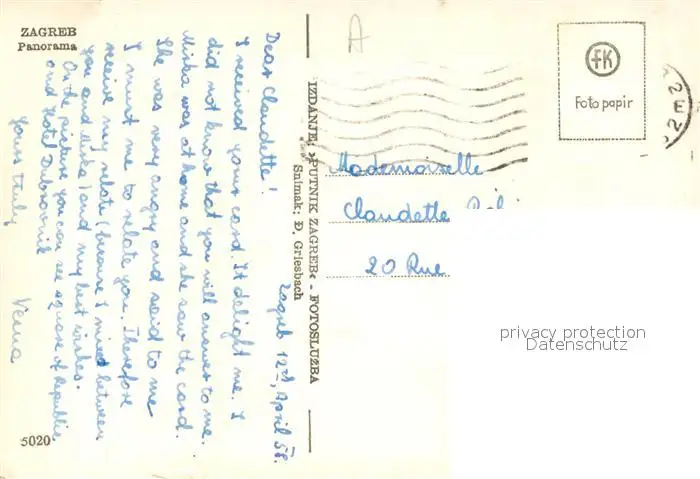 ZAGREB
Panorama
Zagreb 12th, April 58.
Dear Claudette!
I received your card. It delight me. I
did not know that you will answer to me.
Miska was at home and she saw the card.
She was very angry and said to me
I must me to relate you. Therefore
receive my relate (because I mixed between
you and Miska) and my best wishes.
On the picture you can see square of Republic
and Hotel Dubrovnik
Yours truly
Vesna
5020
IZDANJE: »PUTNIK ZAGREB« - FOTOSLUŽBA
Snimak: Đ. Griesbach
A
fK
Foto papir
Mademoiselle
Claudette
20 Rue
privacy protection
Datenschutz